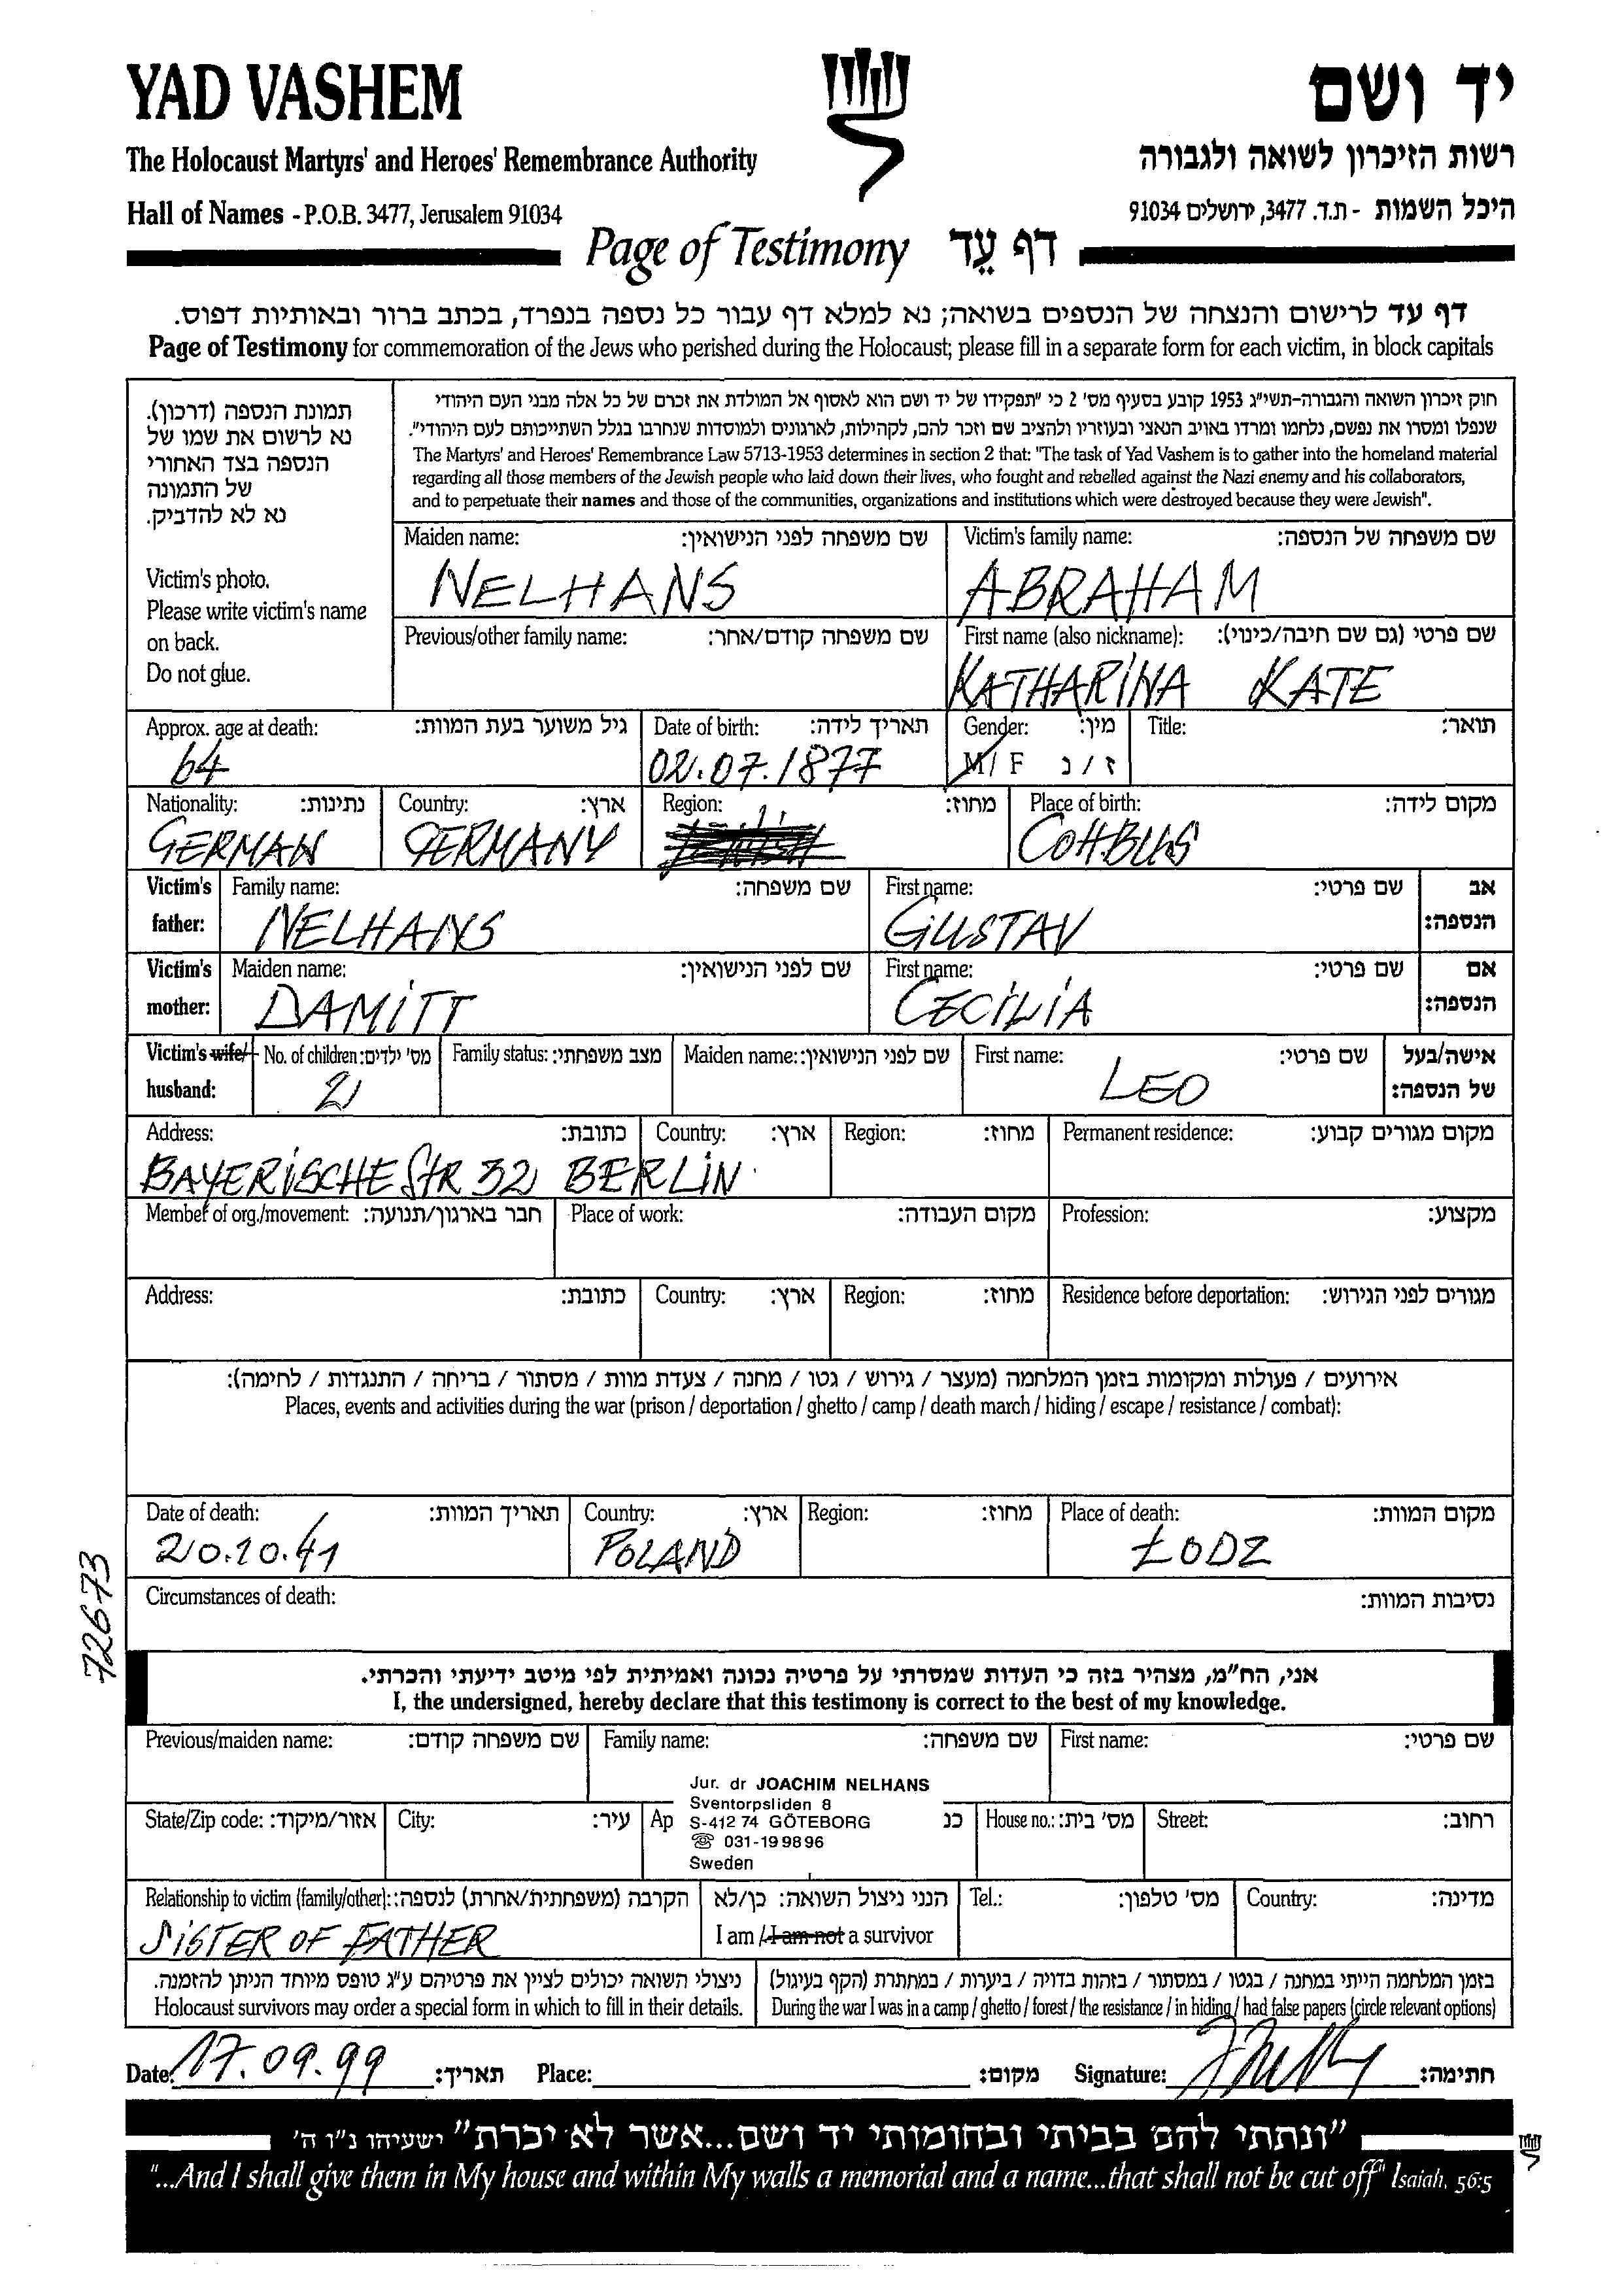 YAD VASHEM
יד ושם
The Holocaust Martyrs' and Heroes' Remembrance Authority
רשות הזיכרון לשואה ולגבורה
Hall of Names - P.O.B. 3477, Jerusalem 91034
היכל השמות - ת.ד. 3477, ירושלים 91034
Page of Testimony דף עֵד
דף עד לרישום והנצחה של הנספים בשואה; נא למלא דף עבור כל נספה בנפרד, בכתב ברור ובאותיות דפוס.
Page of Testimony for commemoration of the Jews who perished during the Holocaust; please fill in a separate form for each victim, in block capitals
תמונת הנספה (דרכון).
נא לרשום את שמו של
הנספה בצד האחורי
של התמונה
נא לא להדביק.
Victim's photo.
Please write victim's name
on back.
Do not glue.
חוק זיכרון השואה והגבורה-תשי"ג 1953 קובע בסעיף מס' 2 כי "תפקידו של יד ושם הוא לאסוף אל המולדת את זכרם של כל אלה מבני העם היהודי
שנפלו ומסרו את נפשם, נלחמו ומרדו באויב הנאצי ובעוזריו ולהציב שם וזכר להם, לקהילות, לארגונים ולמוסדות שנחרבו בגלל השתייכותם לעם היהודי".
The Martyrs' and Heroes' Remembrance Law 5713-1953 determines in section 2 that: "The task of Yad Vashem is to gather into the homeland material
regarding all those members of the Jewish people who laid down their lives, who fought and rebelled against the Nazi enemy and his collaborators,
and to perpetuate their names and those of the communities, organizations and institutions which were destroyed because they were Jewish".
Maiden name: שם משפחה לפני הנישואין: Victim's family name: שם משפחה של הנספה:
NELHANS ABRAHAM
Previous/other family name: שם משפחה קודם/אחר: First name (also nickname): שם פרטי (גם שם חיבה/כינוי):
KATHARINA KATE
Approx. age at death: גיל משוער בעת המוות: Date of birth: תאריך לידה: Gender: מין: Title: תואר:
64 02.07.1877 M/ F ז / נ
Nationality: נתינות: Country: ארץ: Region: מחוז: Place of birth: מקום לידה:
GERMAN GERMANY COTTBUS
Victim's father: Family name: שם משפחה: First name: שם פרטי: אב הנספה:
NELHANS GUSTAV
Victim's mother: Maiden name: שם לפני הנישואין: First name: שם פרטי: אם הנספה:
DAMITT CECILIA
Victim's wife/ husband: No. of children: מס' ילדים: Family status: מצב משפחתי: Maiden name: שם לפני הנישואין: First name: שם פרטי: אישה/בעל של הנספה:
2 LEO
Address: כתובת: Country: ארץ: Region: מחוז: Permanent residence: מקום מגורים קבוע:
BAYERISCHE STR 32 BERLIN
Member of org./movement: חבר בארגון/תנועה: Place of work: מקום העבודה: Profession: מקצוע:
Address: כתובת: Country: ארץ: Region: מחוז: Residence before deportation: מגורים לפני הגירוש:
אירועים / פעולות ומקומות בזמן המלחמה (מעצר / גירוש / גטו / מחנה / צעדת מוות / מסתור / בריחה / התנגדות / לחימה):
Places, events and activities during the war (prison / deportation / ghetto / camp / death march / hiding / escape / resistance / combat):
Date of death: תאריך המוות: Country: ארץ: Region: מחוז: Place of death: מקום המוות:
20.10.41 POLAND ŁODZ
72673
Circumstances of death: נסיבות המוות:
אני, הח"מ, מצהיר בזה כי העדות שמסרתי על פרטיה נכונה ואמיתית לפי מיטב ידיעתי והכרתי.
I, the undersigned, hereby declare that this testimony is correct to the best of my knowledge.
Previous/maiden name: שם משפחה קודם: Family name: שם משפחה: First name: שם פרטי:
Jur. dr JOACHIM NELHANS
Sventorpsliden 8
S-412 74 GÖTEBORG
☏ 031-19 98 96
Sweden
State/Zip code: אזור/מיקוד: City: עיר: Ap כנ House no.: מס' בית: Street: רחוב:
Relationship to victim (family/other): הקרבה (משפחתית/אחרת) לנספה: הנני ניצול השואה: כן/לא Tel.: מס' טלפון: Country: מדינה:
SISTER OF FATHER I am / I am not a survivor
ניצולי השואה יכולים לציין את פרטיהם ע"ג טופס מיוחד הניתן להזמנה.
Holocaust survivors may order a special form in which to fill in their details.
בזמן המלחמה הייתי במחנה / בגטו / במסתור / בזהות בדויה / ביערות / במחתרת (הקף בעיגול)
During the war I was in a camp / ghetto / forest / the resistance / in hiding / had false papers (circle relevant options)
Date: 17.09.99 תאריך: Place: מקום: Signature: חתימה:
"ונתתי להם בביתי ובחומותי יד ושם...אשר לא יכרת" ישעיהו נ"ו ה'
"...And I shall give them in My house and within My walls a memorial and a name...that shall not be cut off" Isaiah, 56:5